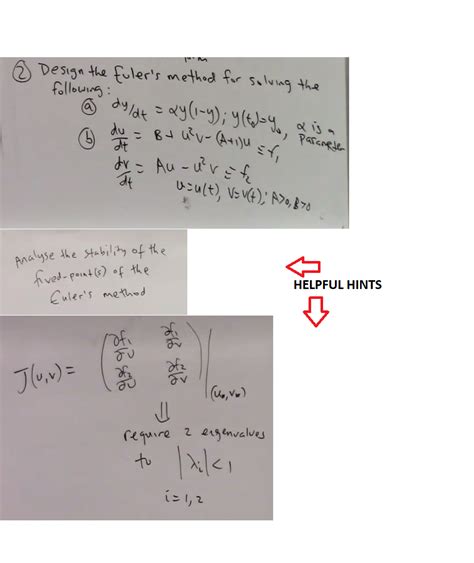 ② Design the Euler's method for solving the
following:
ⓐ dy/dt = αy(1-y); y(t₀)=y₀, α is a
parameter
ⓑ du/dt = B + u²v - (A+1)u ≡ f₁
dv/dt = Au - u²v ≡ f₂
u=u(t), v=v(t); A>0, B>0
Analyse the stability of the
fixed-point(s) of the
Euler's method
HELPFUL HINTS
J(u,v) = (∂f₁/∂u ∂f₁/∂v
∂f₂/∂u ∂f₂/∂v)|(u₀,v₀)
⇓
require 2 eigenvalues
to |λᵢ|<1
i=1,2